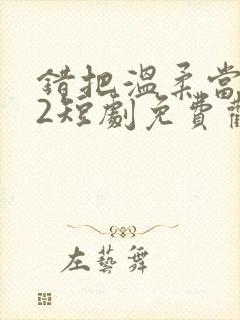 錯把溫柔當
2短劇免費觀
左藝舞